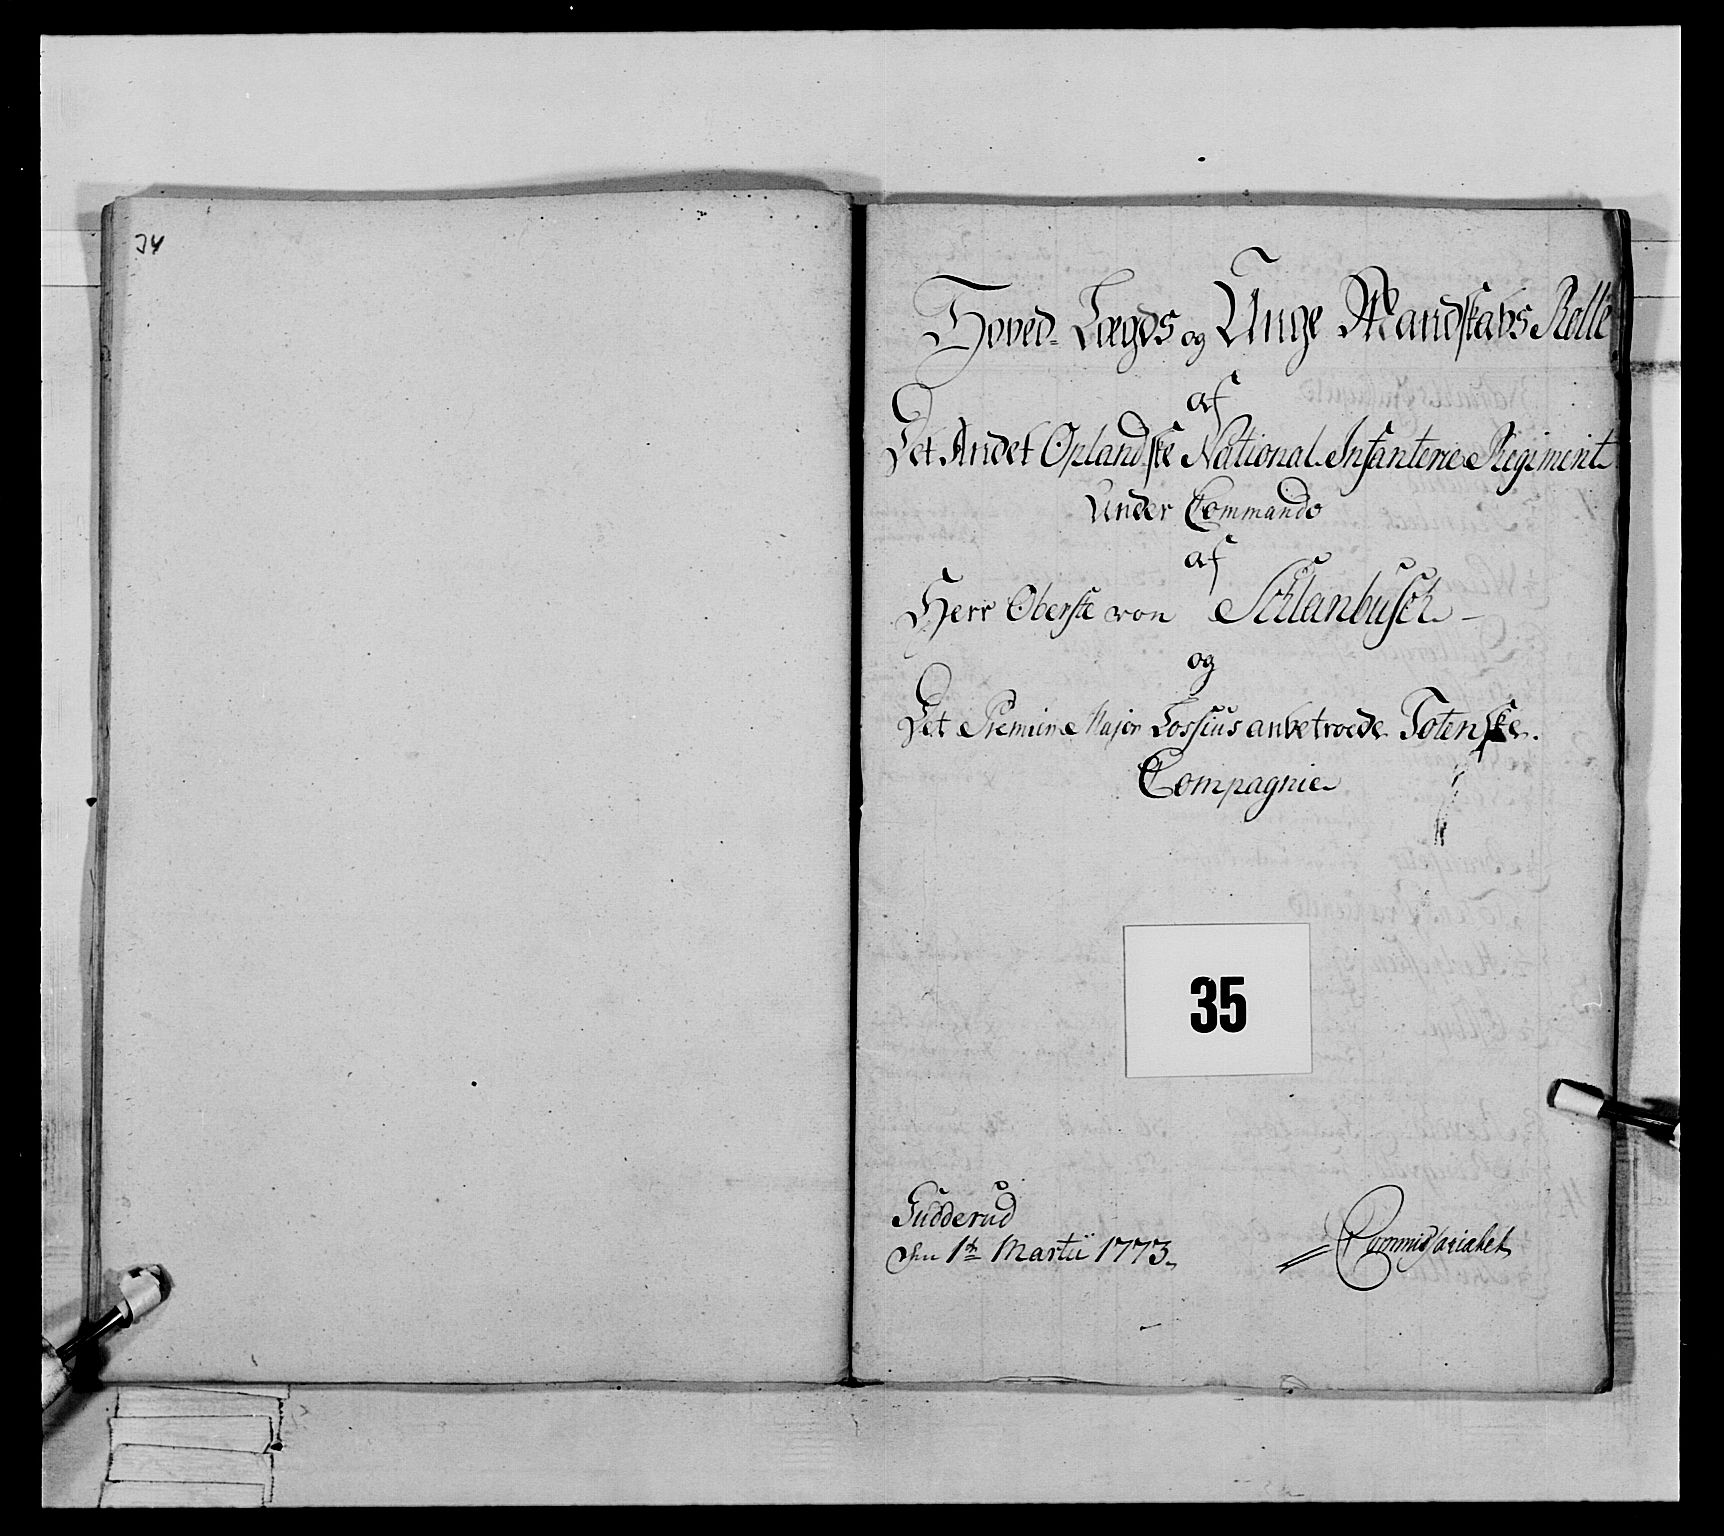 34
Hoved- Lægds og Unge Mandskabs Rolle
af
Det Andet Oplandske National Infanterie Regiment
Under Commando
af
Herr Oberste von Schlanbusch
og
Det Premier Major Lossius anbetroede Totenske
Compagnie
35
Gudderud
den 1te Martii 1773.
Commissariatet